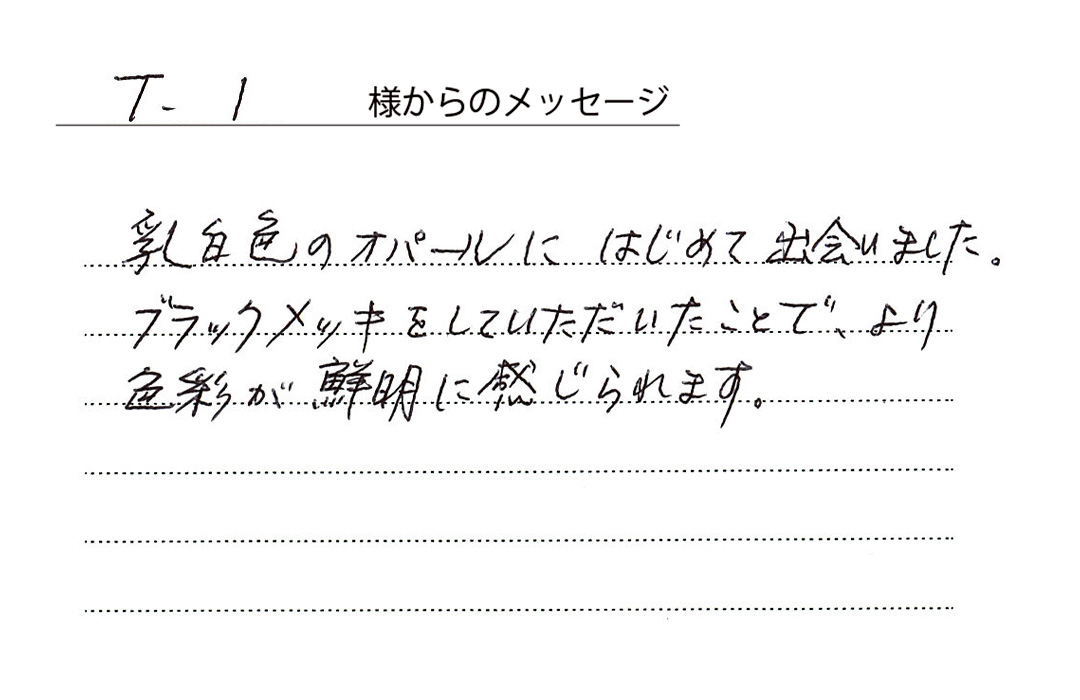 T- I 様からのメッセージ
乳白色のオパールに はじめて出会いました。
ブラックメッキをしていただいたことで、より
色彩が鮮明に感じられます。